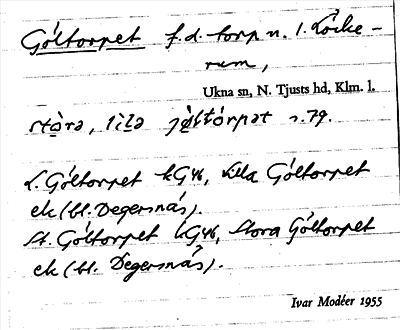 Göltorpet f.d. torp u. L. Löcke-
rum,
Ukna sn, N. Tjusts hd, Klm. l.
stòrə, lìlə jö̀ltórpət s.79.
L. Göltorpet kG46, Lilla Göltorpet
ek (bl. Degersnäs).
St. Göltorpet kG46, Stora Göltorpet
ek (bl. Degersnäs).
Ivar Modéer 1955